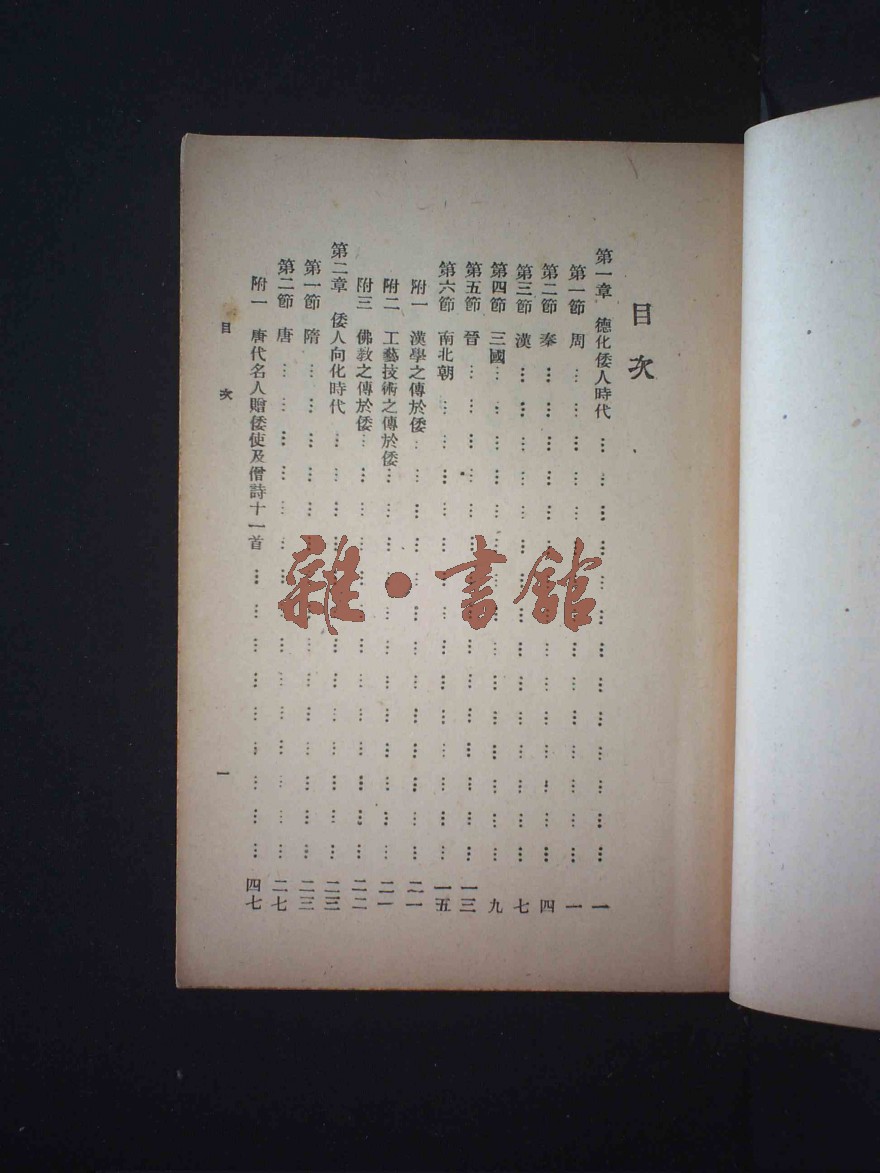 目次
第一章 德化倭人時代……一
第一節 周……一
第二節 秦……四
第三節 漢……七
第四節 三國……九
第五節 晉……一三
第六節 南北朝……一五
附一 漢學之傳於倭……二一
附二 工藝技術之傳於倭……二一
附三 佛教之傳於倭……二二
第二章 倭人向化時代……二三
第一節 隋……二三
第二節 唐……二七
附一 唐代名人贈倭使及僧詩十一首……四七
目次 一
雜·書館